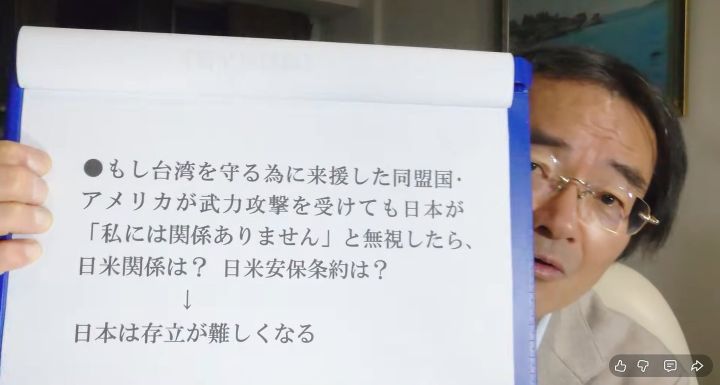 ●もし台湾を守る為に来援した同盟国・
アメリカが武力攻撃を受けても日本が
「私には関係ありません」と無視したら、
日米関係は？ 日米安保条約は？
↓
日本は存立が難しくなる